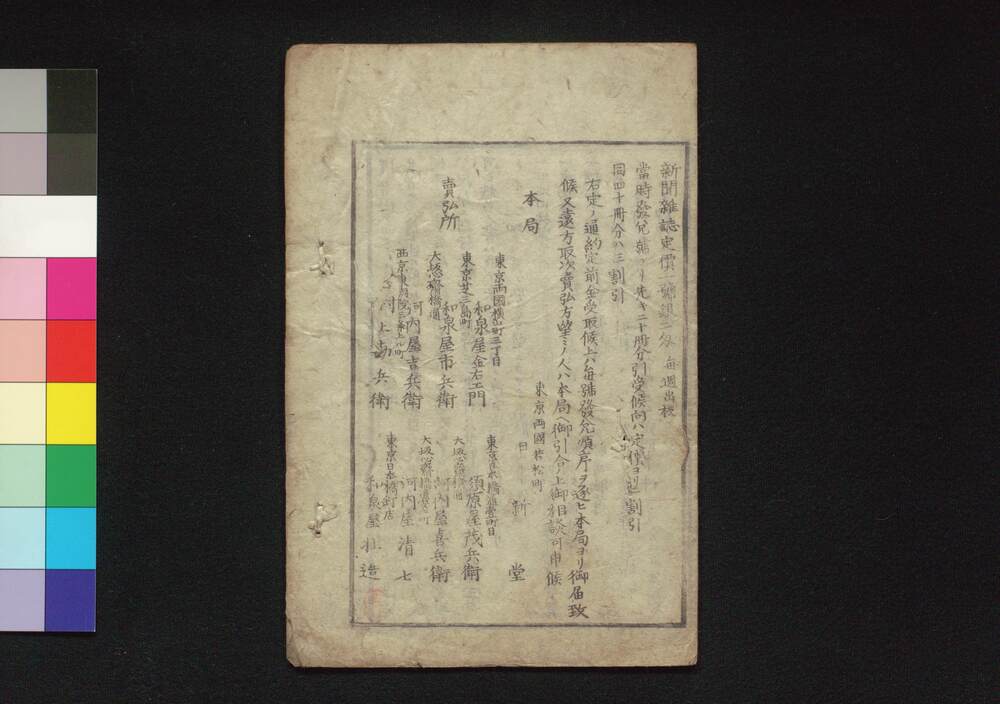 新聞雜誌定價一號銀二匁 毎週出板
當時發兌號ヨリ先キ二十冊分引受候向ハ定價ヨリ一割引
同四十冊分ハ三割引
右定ノ通約定前金受取候上ハ毎號發兌順序ヲ逐ヒ本局ヨリ御届致
候又遠方取次賣弘方望ミノ人ハ本局ヘ御引合ノ上御相談可申候
東京両國若松町
本局 日新堂
東京両國横山町三丁目
和泉屋金右エ門
東京芝三島町
和泉屋市兵衛
賣弘所
大坂心齋橋通
河内屋吉兵衛
西京東洞院三條上ル町
村上勘兵衛
東京日本橋通壹町目
須原屋茂兵衛
大坂心齋橋通
河内屋喜兵衛
大坂心齋橋
河内屋清七
東京日本橋釘店
和泉屋壯造